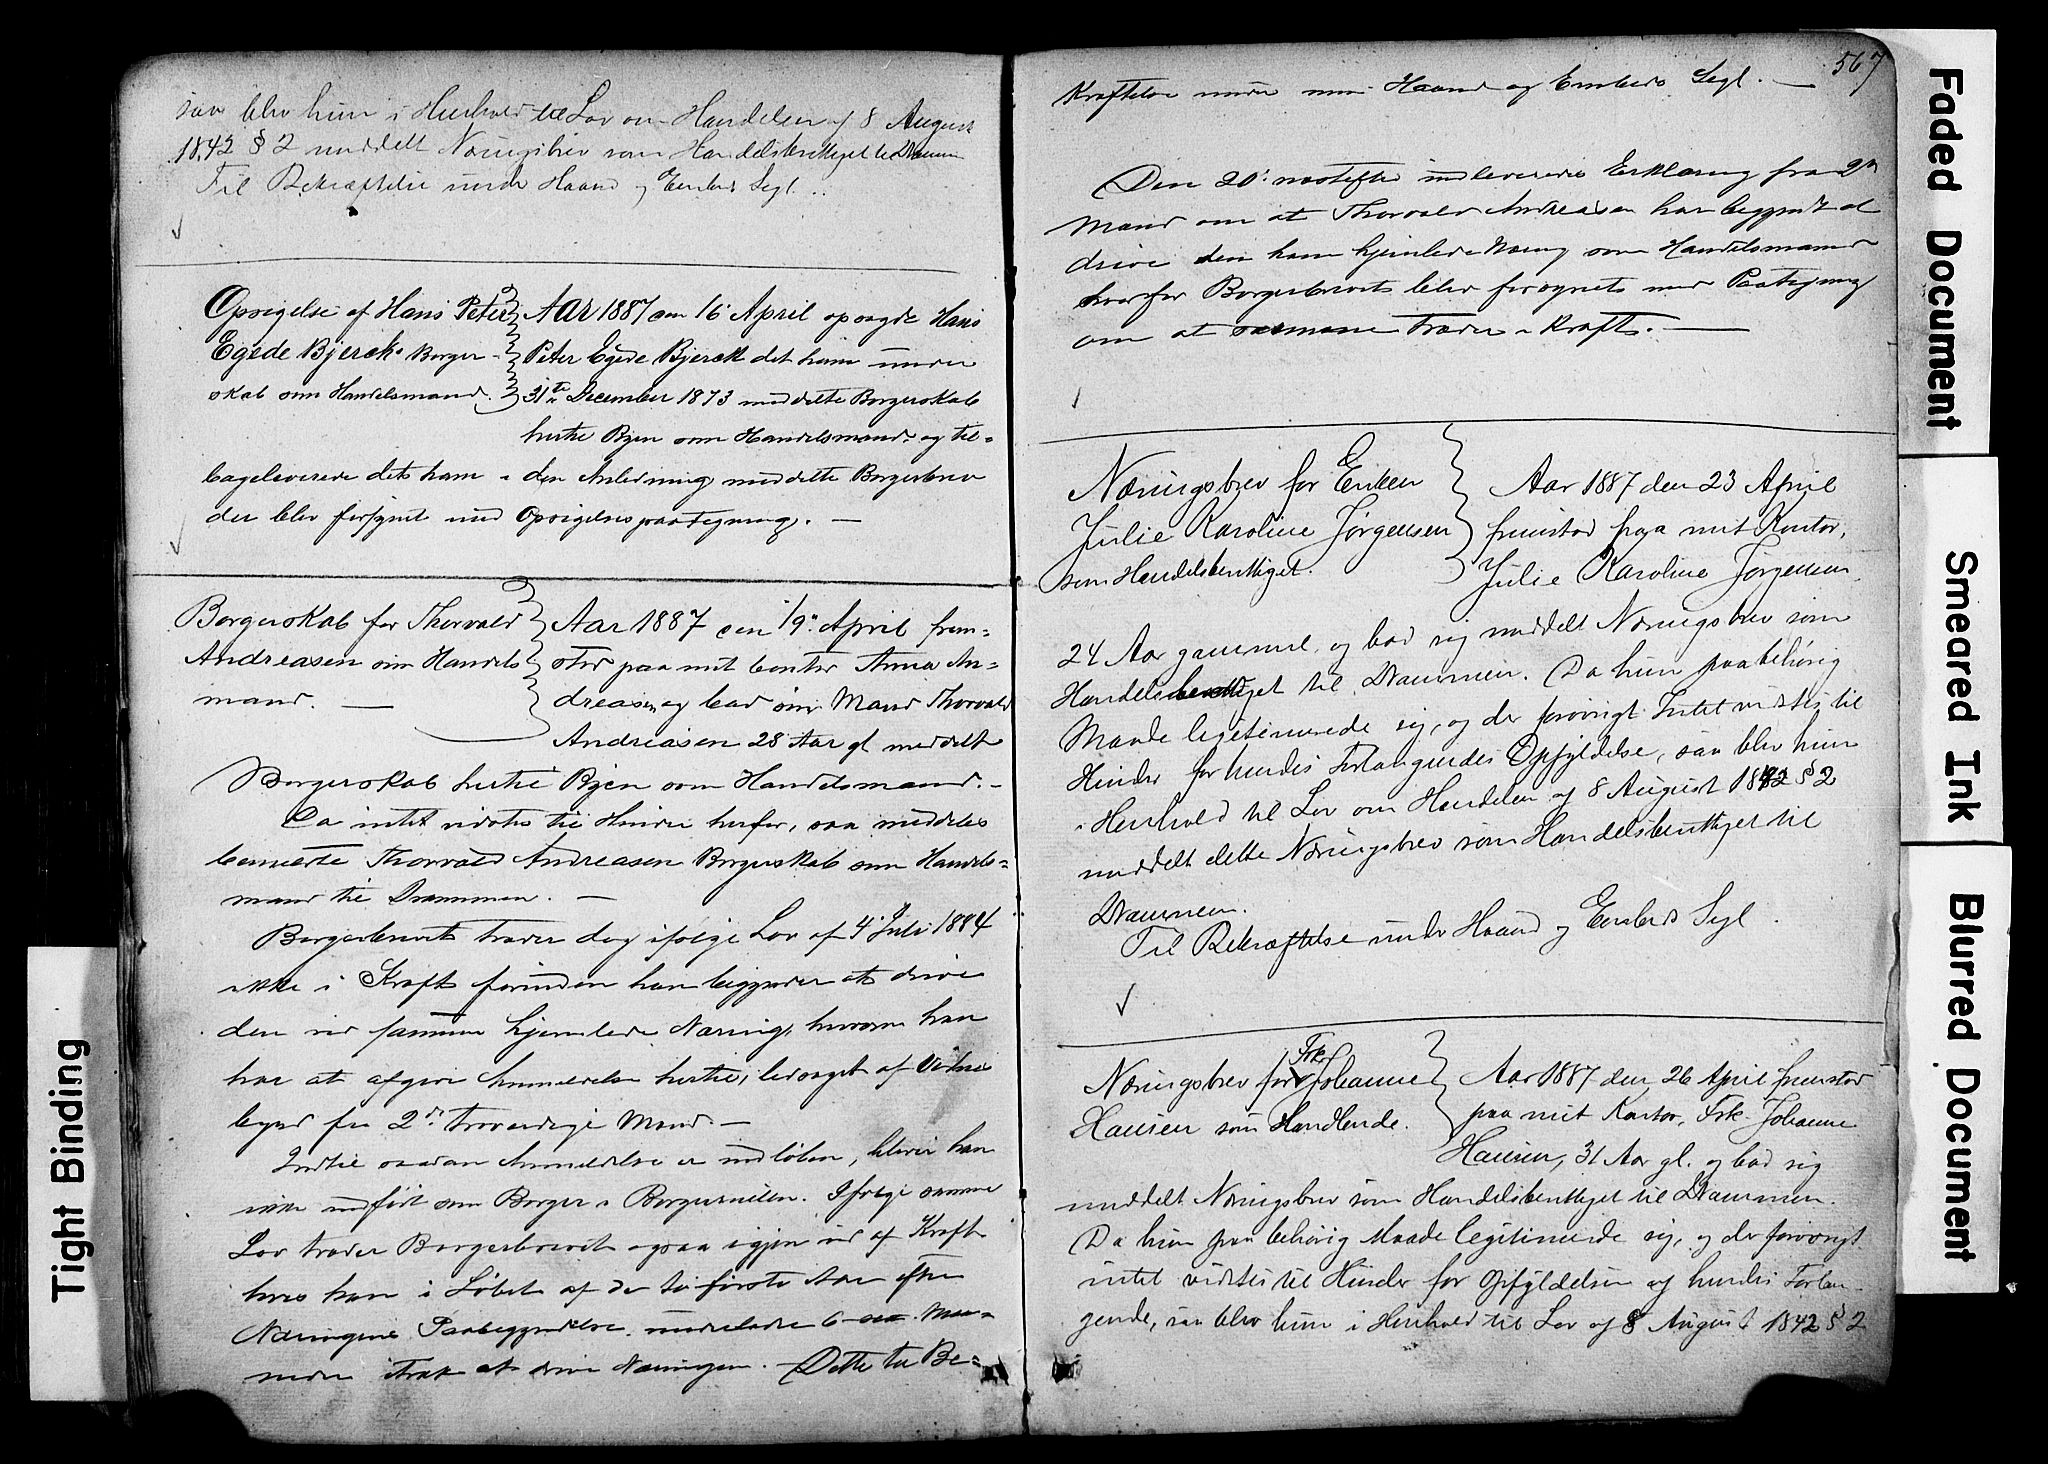 saa blev hun i Henhold til Lov om Handelen af 8 August
1842 § 2 meddelt Næringsbrev som Handelsberettiget til Drammen
Til Bekræftelse under Haand og Embeds Segl.
Opsigelse af Hans Peter
Egede Bjercks Borger-
skab som Handelsmand.
Aar 1887 den 16 April opsagde Hans
Peter Egede Bjerck det ham under
31te December 1873 meddelte Borgerskab
hertil Byen som Handelsmand og til-
bageleverede det ham i den Anledning meddelte Borgerbrev
der blev forsynet med Opsigelsespaategning. —
Borgerskab for Thorvald
Andreasen som Handels
mand. —
Aar 1887 den 19. April frem-
stod paa mit Contor Anna An-
dreasen og bad sin Mand Thorvald
Andreasen 28 Aar gl meddelt
Borgerskab hertil Byen som Handelsmand. -
Da intet vidstes til Hinder herfor, saa meddeles
benævnte Thorvald Andreasen Borgerskab som Handels-
mand til Drammen. —
Borgerbrevet træder dog ifølge Lov af 4' Juli 1884
ikke i Kraft forinden han begynder at drive
den ved samme hjemlede Næring, hvorom han
har at afgive Anmeldelse hertil, ledsaget af Vidnes
byrd fra 2de troværdige Mænd. —
Indtil saadan Anmeldelse er indløben, bliver han
ikke indført som Borger i Borgerrullen. Ifølge samme
Lov træder Borgerbrevet ogsaa igjen ud af Kraft
hvis han i Løbet af de to første Aar efter
Næringens Paabegyndelse undlader 6 Maa-
neder i Træk at drive Næringen. — Dette til Be-
567
kræftelse under min Haand og Embeds Segl. —
Den 20' næstefter indleveredes Erklæring fra 2de
Mænd om at Thorvald Andreasen har begyndt at
drive den ham hjemlede Næring som Handelsmand
hvorfor Borgerbrevet blev forsynet med Paategning
om at samme træder i Kraft. —
Næringsbrev for Enken
Julie Karoline Jørgensen
som Handelsberettiget.
Aar 1887 den 23 April
fremstod paa mit Kontor,
Julie Karoline Jørgensen
24 Aar gammel, og bad sig meddelt Næringsbrev som
Handelsberettiget til Drammen. Da hun paa behørig
Maade legitimerede sig, og der forøvrigt Intet vidstes til
Hinder for hendes Forlangendes Opfyldelse, saa blev hun
i Henhold til Lov om Handelen af 8 August 1842 § 2
meddelt dette Næringsbrev som Handelsberettiget til
Drammen.
Til Bekræftelse under Haand og Embeds Segl.
Frk
Næringsbrev for Johanne
Hansen som Handlende.
Aar 1887 den 26 April fremstod
paa mit Kontor, Frk. Johanne
Hansen, 31 Aar gl. og bad sig
meddelt Næringsbrev som Handelsberettiget til Drammen.
Da hun paa behørig Maade legitimerede sig, og der forøvrigt
intet vidstes til Hinder for Opfyldelsen af hendes Forlan-
gende, saa blev hun i Henhold til Lov af 8 August 1842 § 2
Tight Binding
Faded Document
Smeared Ink
Blurred Document